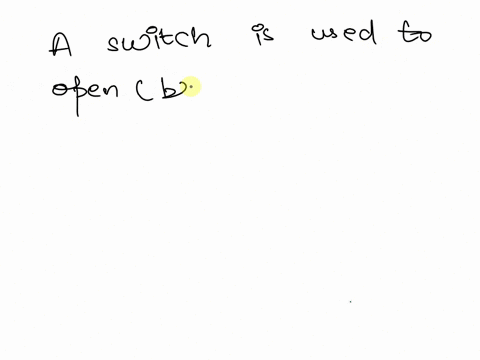 A switch is used to
open (b